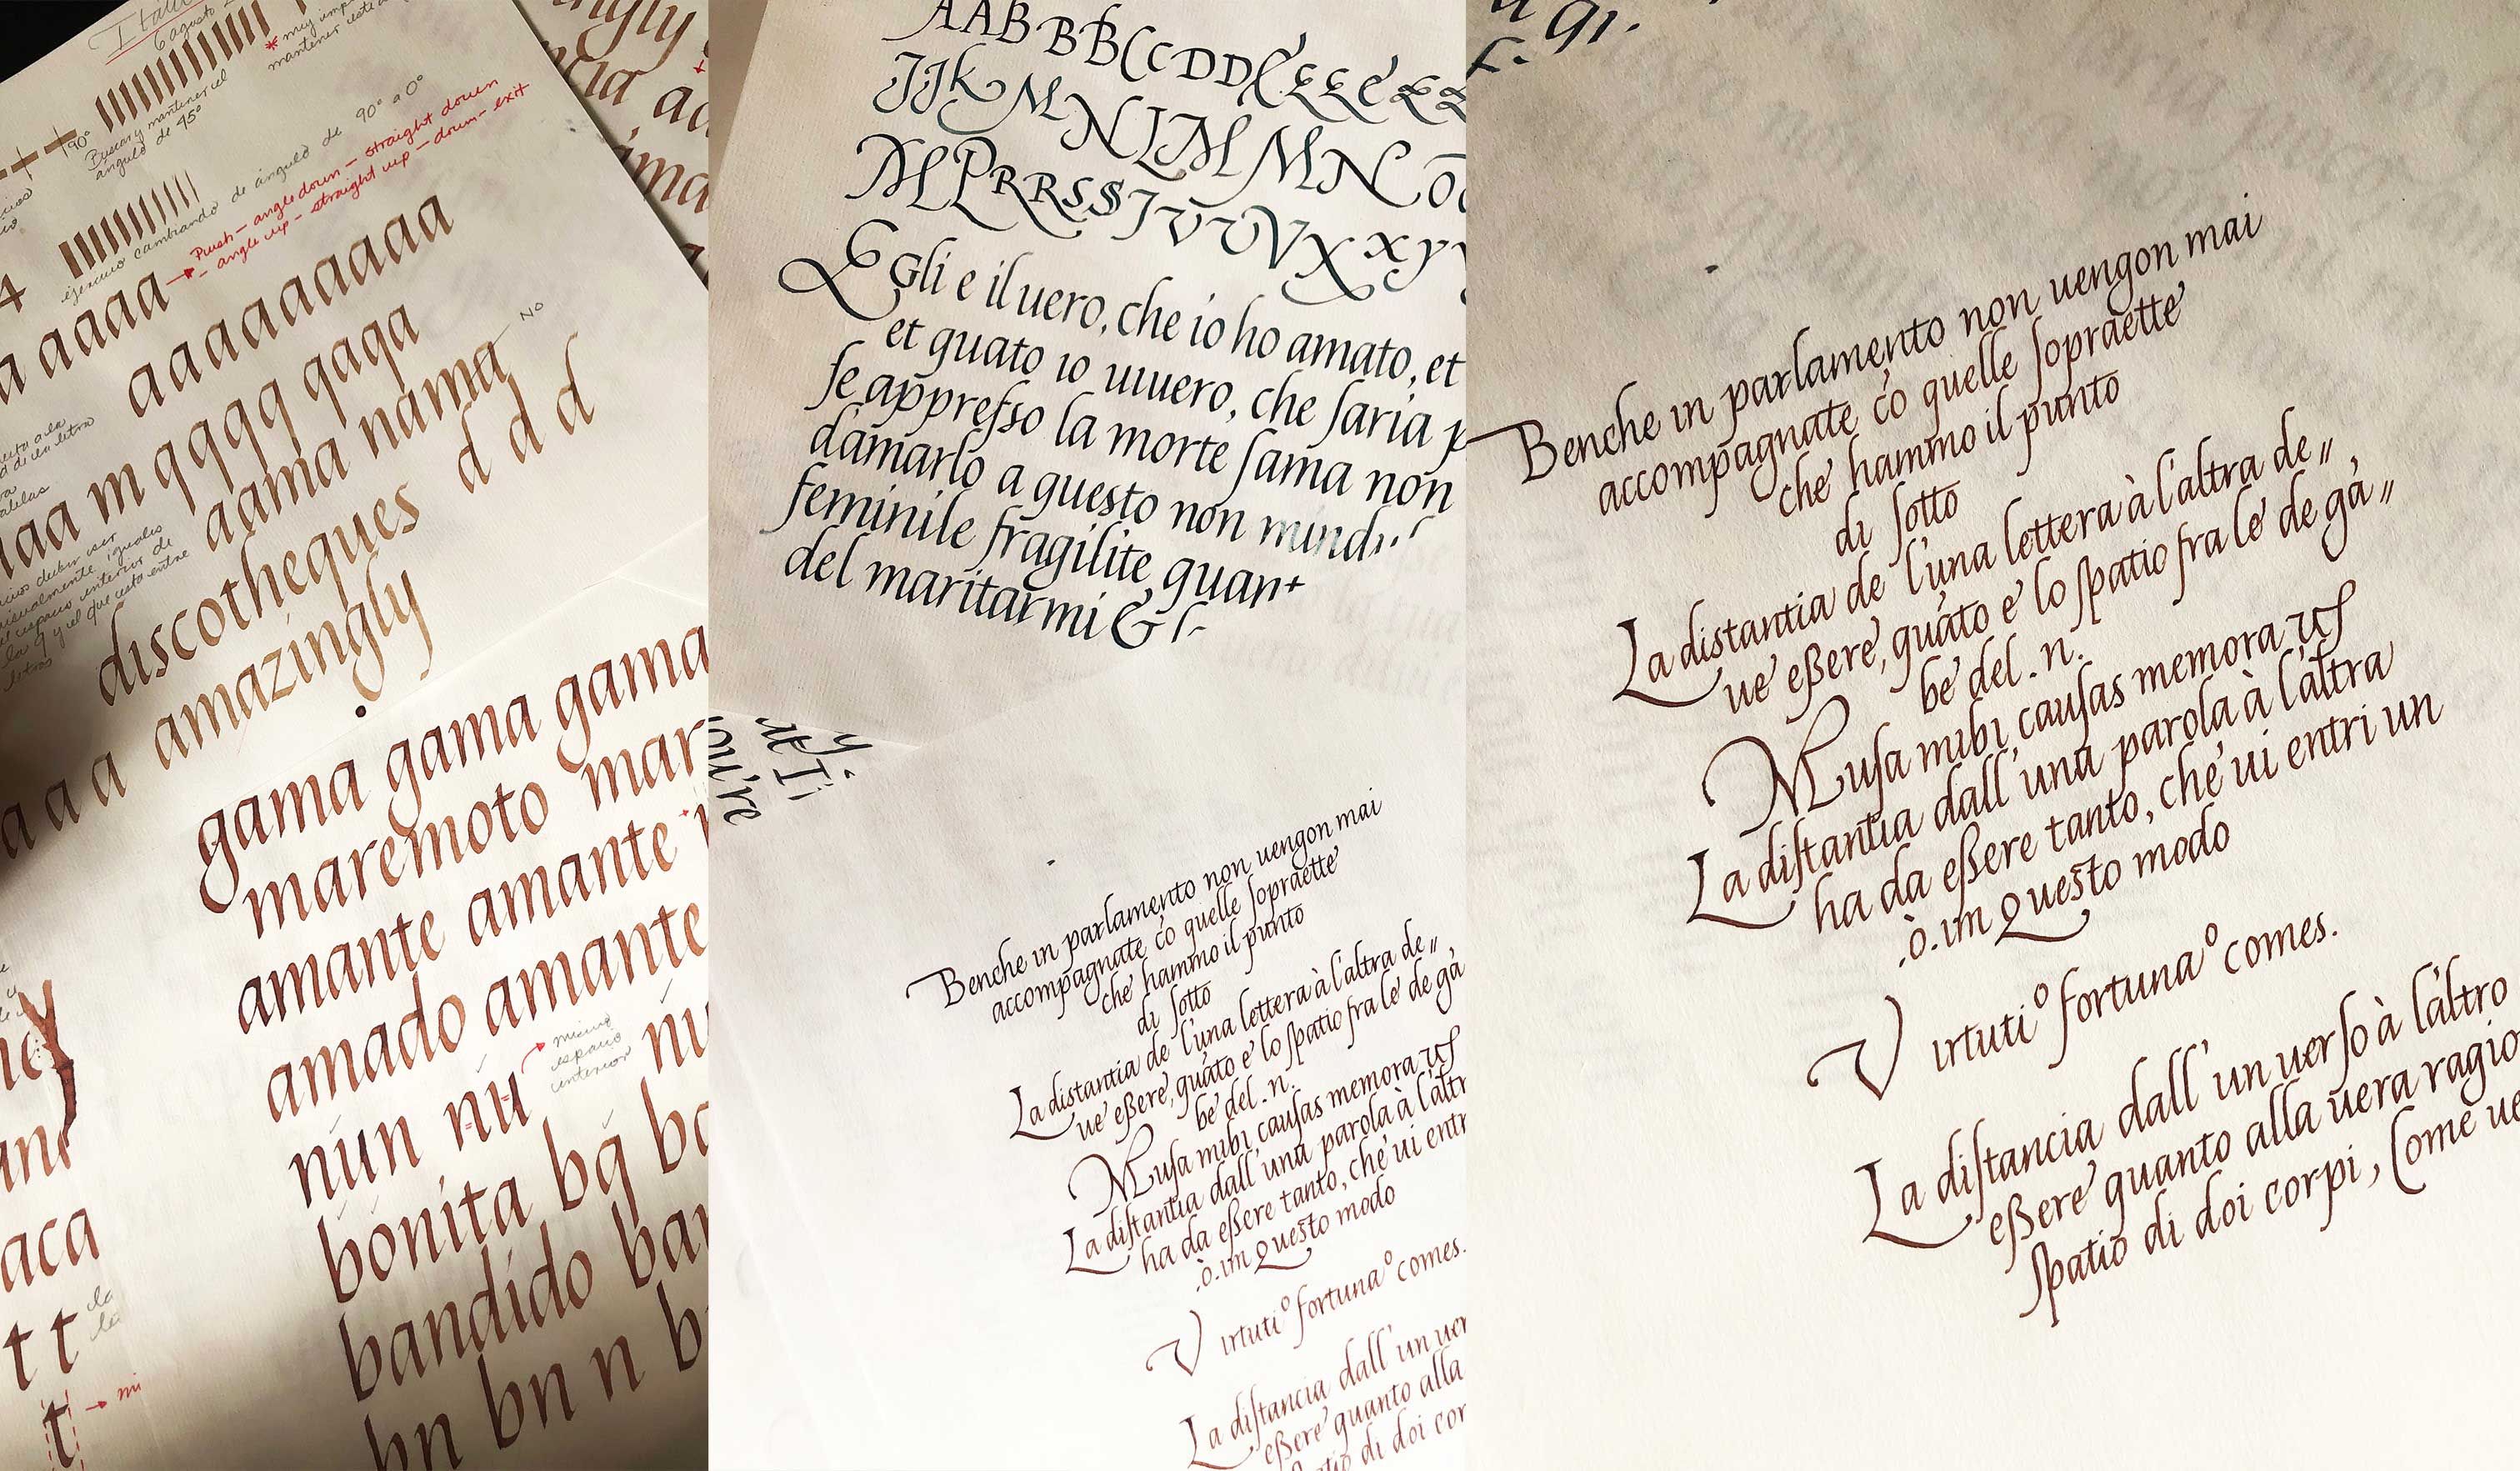 6 agosto
* muy imp
mantener este
90°
Buscar y mantener el
ángulo de 45°
ejercicio cambiando de ángulo de 90° a 0°
Push – angle down – straight down
– angle up – straight up – down – exit
4
a aaaaa aaaaaaaaa
aaa m qqqq qaqa
aama nama
No
discotheques d d d
a a a amazingly
visualmente iguales
el espacio interior de
la q y el que esta entre
letras
gama gama gama
maremoto mar
amante amante
amado amante
nun nu nu
mismo
espacio
interior
bonita bq bo
bandido ban
bn bn n b
aca
t t
la
t → mi
ngly
cia ac
ima
AABBBCCDD
JJK M N L M M N O
PRRSSTVVVXXYY
EGli e il uero, che io ho amato, et
et quato io uiuero, che ſaria p
ſe appreſso la morte ſama non
d'amarlo a questo non
feminile fragilite quan
del maritarmi &
y.
at I'i
ou're
Benche in parlamento non uengon mai
accompagnate cō quelle ſopraette
che hammo il punto
di ſotto
La distantia de l'una lettera à l'altra de〃
ue' eßere, quāto e' lo ſpatio fra le' de gā
be' del .n.
Muſa mibi cauſas memora uſ
La diſtantia dall'una parola à l'altr
ha da eßere tanto, che' ui entr
.ò. im Questo modo
Virtuti° fortuna° comes.
La diſtancia dall' un uer
eßere' quanto alla
ſpatio di doi cor
91.
Benche in parlamento non uengon mai
accompagnate cō quelle ſopraette
che' hammo il punto
di ſotto
La distantia de l'una lettera à l'altra de〃,
ue' eßere, quāto e' lo ſpatio fra le' de gā〃
be' del .n.
Muſa mibi cauſas memora uſ
La diſtantia dall'una parola à l'altra
ha da eßere tanto, che' ui entri un
.ò. im Questo modo
Virtuti° fortuna° comes.
La diſtancia dall' un uerſo à l'altro
eßere' quanto alla uera ragio
ſpatio di doi corpi, Come ue